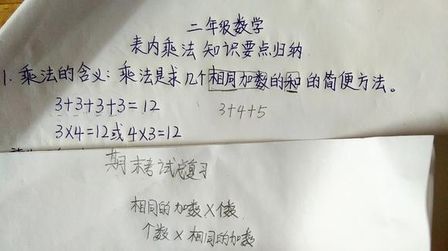 二年级数学
表内乘法 知识要点归纳
1. 乘法的含义：乘法是求几个相同加数的和的简便方法。
3+3+3+3=12 3+4+5
3×4=12或4×3=12
期末考试总复习
相同的加数×个数
个数×相同的加数